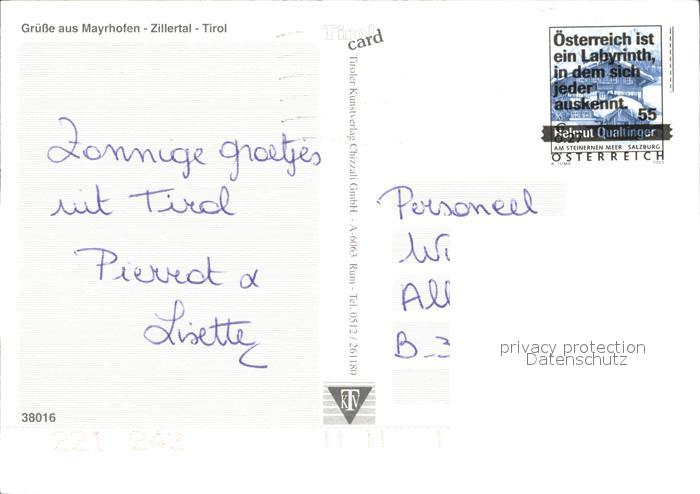 Grüße aus Mayrhofen - Zillertal - Tirol
Zonnige groetjes
uit Tirol
Pierrot &
Lisette
38016
Tirol
card
Tiroler Kunstverlag Chizzali GmbH. - A-6063 Rum - Tel. 0512 / 261180
KTV
Österreich ist
ein Labyrinth,
in dem sich
jeder
auskennt.
55
Helmut Qualtinger
AM STEINERNEN MEER SALZBURG
ÖSTERREICH
Personeel
Wi
All
B-3
privacy protection
Datenschutz
221 242